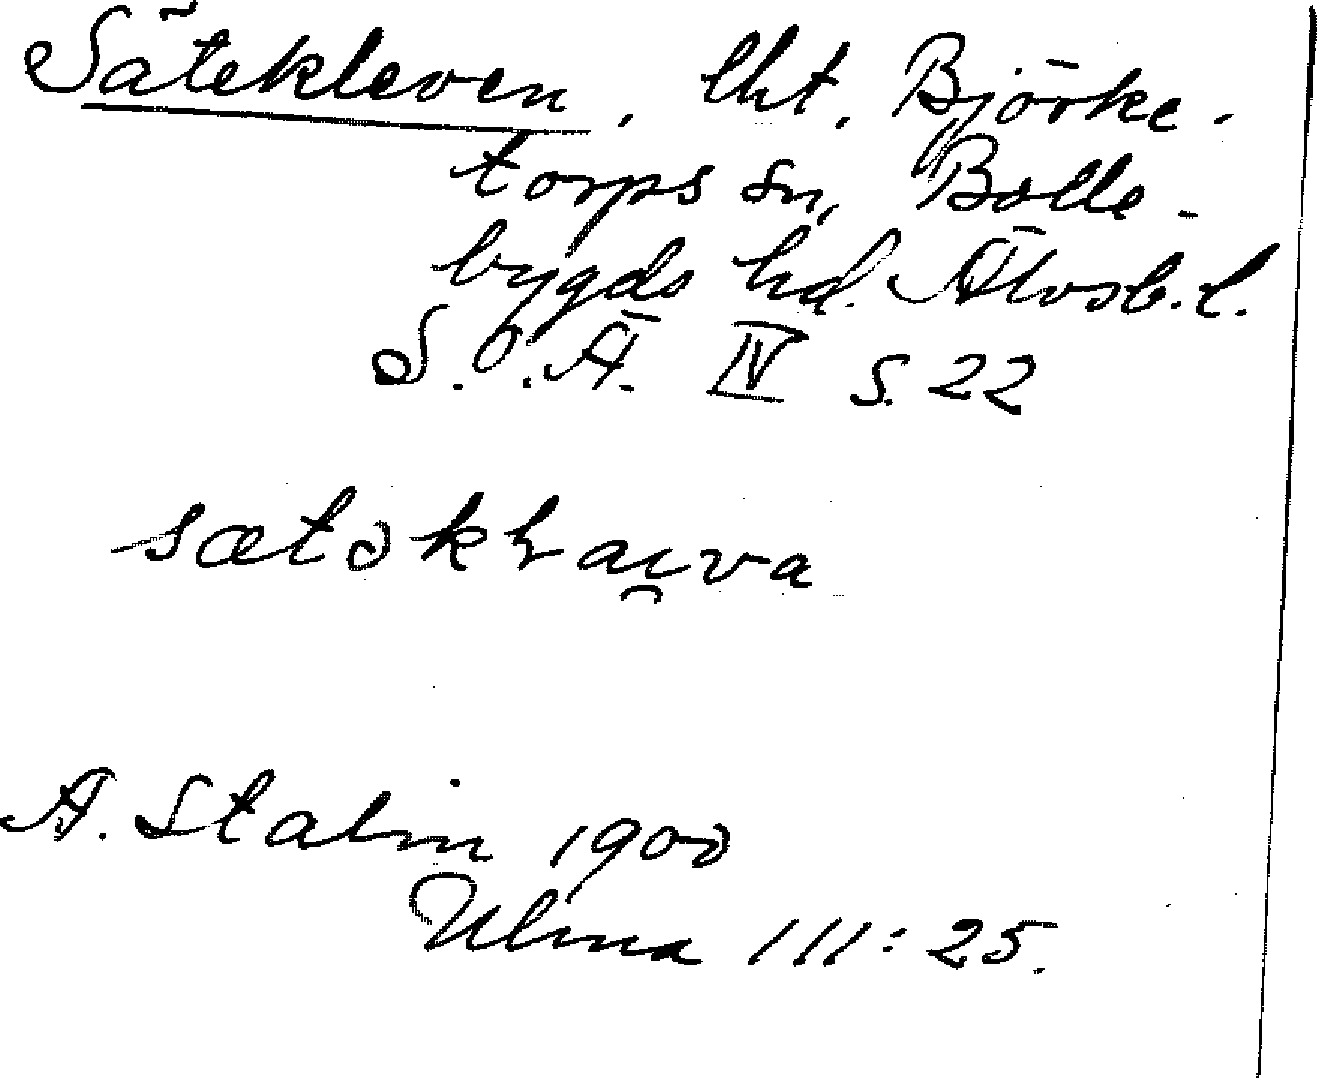 Sätekleven. lht. Björke-
torps sn, Bolle-
bygds hd. Älvsb. l.
S. O. Ä. IV s. 22
sætəkḷaı̯va
A. Stalin 1900
Ulma 111:25.